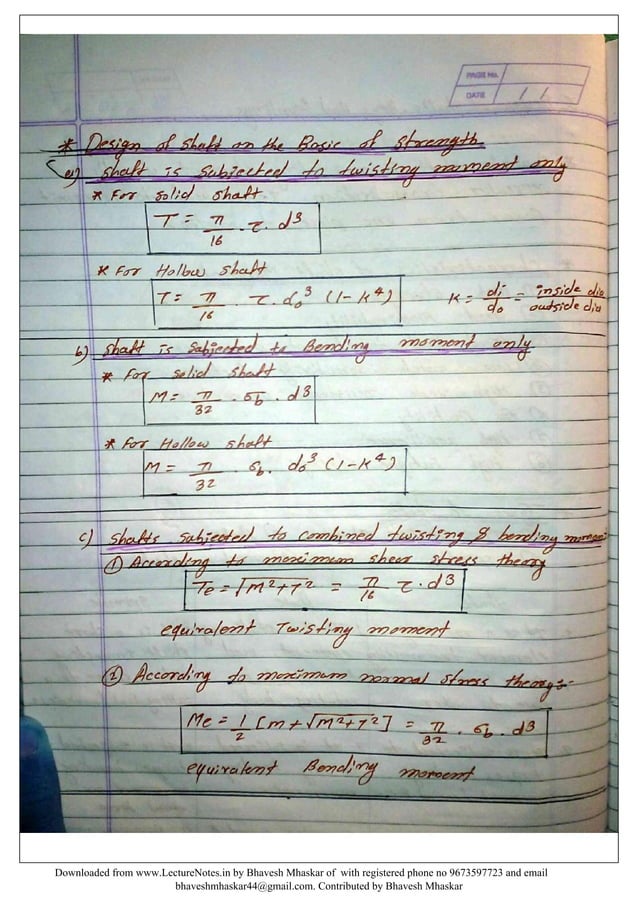 PAGE No.
DATE / /
* Design of shaft on the Basic of strength
a) shaft is subjected to twisting moment only
* For solid shaft
T = π/16 . τ. d³
* For Hollow shaft
T = π/16 . τ. do³ (1-K⁴) K = di/do = inside dia/outside dia
b) shaft is subjected to Bending moment only
* for solid shaft
M = π/32 . σb . d³
* For Hollow shaft
M = π/32 . σb. do³ (1-K⁴)
c) shafts subjected to combined twisting & bending moment
① According to maximum shear stress theory
Te = √M²+T² = π/16 τ. d³
equivalent Twisting moment
② According to maximum normal stress theory:-
Me = 1/2 [M + √M²+T²] = π/32 . σb . d³
equivalent Bending moment
Downloaded from www.LectureNotes.in by Bhavesh Mhaskar of with registered phone no 9673597723 and email
bhaveshmhaskar44@gmail.com. Contributed by Bhavesh Mhaskar